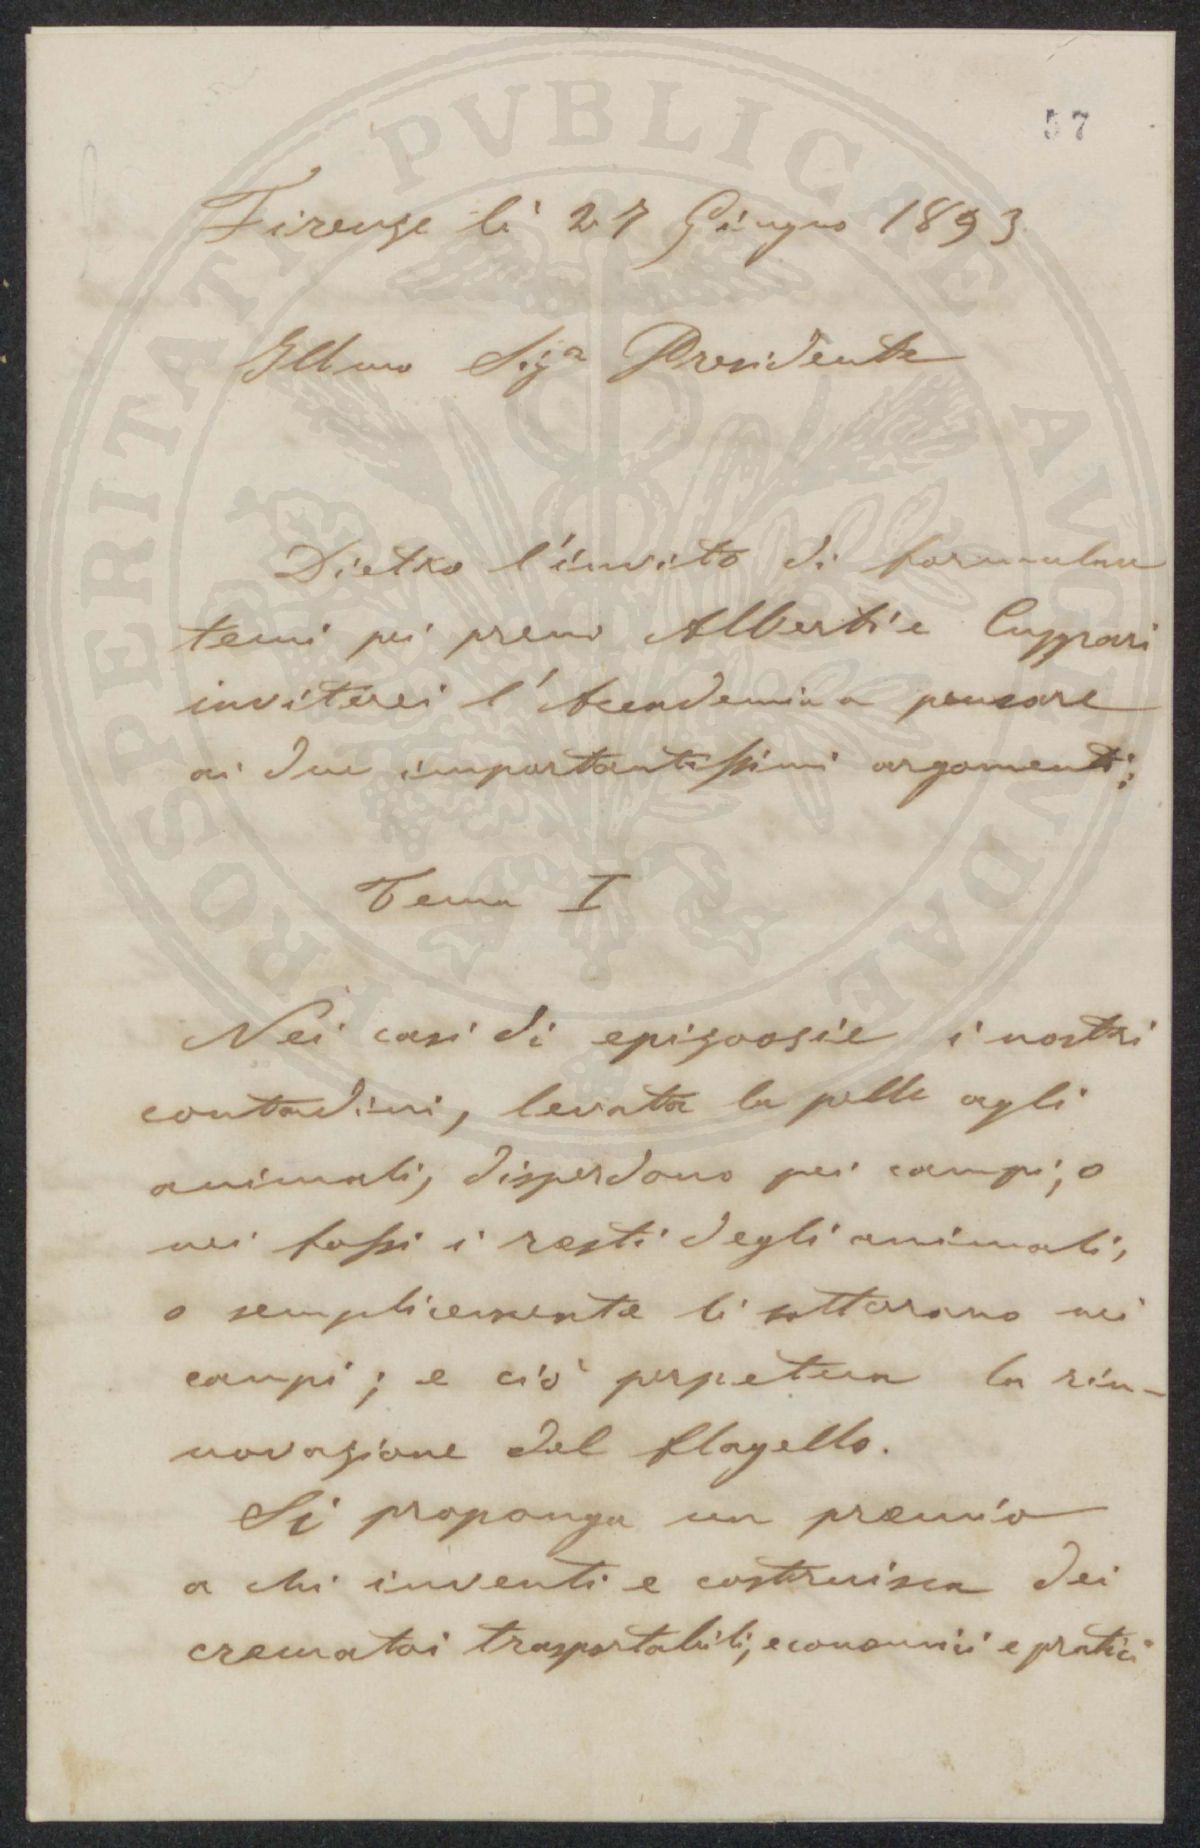 57
Firenze li 27 Giugno 1893
Illmo Sigr Presidente
Dietro l'invito di formulare
temi pei premi Alberti e Cuppari
inviterei l'Accademia a pensare
ai due importantissimi argomenti:
Tema I
Nei casi di epizoozie i nostri
contadini, levata la pelle agli
animali, disperdono pei campi, o
nei fossi i resti degli animali,
o semplicemente li sotterrano nei
campi; e ciò perpetua la rin-
novazione del flagello.
Si proponga un premio
a chi inventi e costruisca dei
crematoi trasportabili, economici e pratici
PROSPERITATI PVBLICAE AVGENDAE